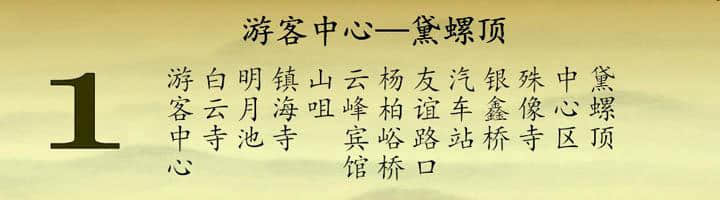 游客中心—黛螺顶
1
游客中心
白云寺
明月池
镇海寺
山咀
云峰宾馆
杨柏峪桥
友谊路口
汽车站
银鑫桥
殊像寺
中心区
黛螺顶